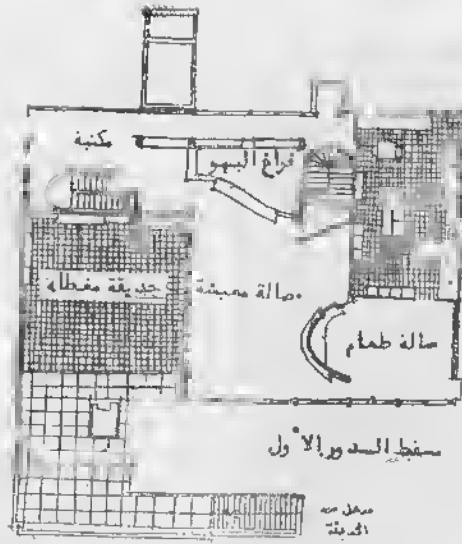 مكتبة
فراغ البهو
حديقة مغطاة
صالة معيشة
صالة طعام
مسقط الدور الأول
مدخل من
الحديقة